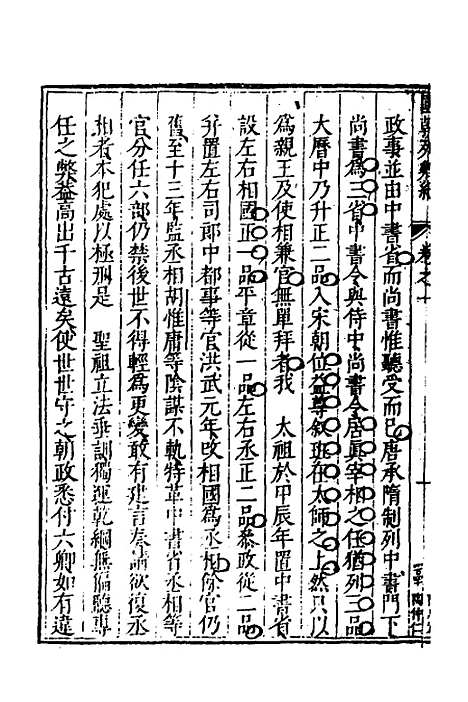 政事並由中書省而尚書惟聽受而已唐承隋制列中書門下
尚書爲三省中書令與侍中尚書令居眞宰相之任猶列三品
大曆中乃升正二品入宋朝位益尊敘班在太師之上然只以
爲親王及使相兼官無單拜者我　太祖於甲辰年置中書省
設左右相國正一品平章從一品左右丞正二品參政從二品
并置左右司郎中都事等官洪武元年改相國爲丞相餘官仍
舊至十三年監丞相胡惟庸等陰謀不軌特革中書省丞相等
官分任六部仍禁後世不得輕爲更變敢有建言奏請欲復丞
相者本犯處以極刑是　聖祖立法垂訓獨運乾綱無偏聽專
任之弊益高出千古遠矣使世世守之朝政悉付六卿如有違